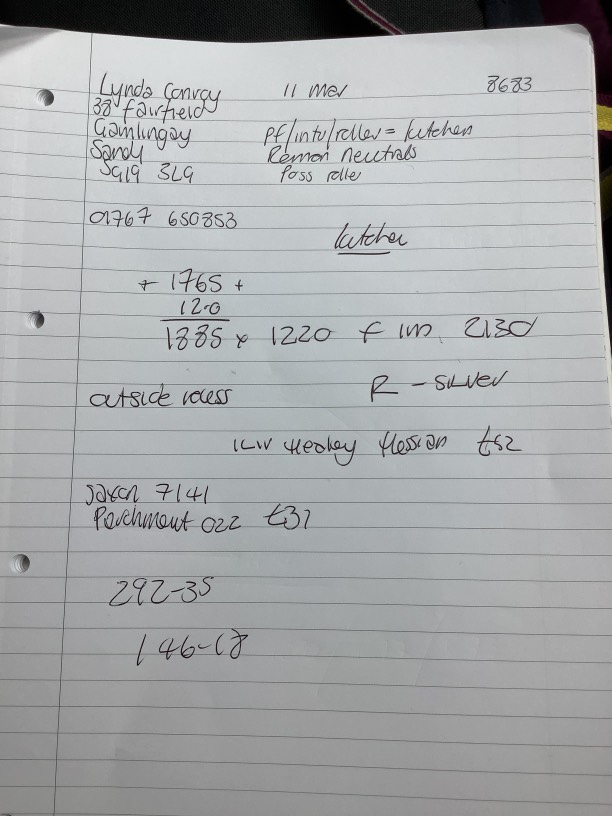 Lynda Conroy 11 Mar 8683
38 Fairfield
Gamlingay Pf/intu/roller = kitchen
Sandy Remon neutrals
SG19 3LG Poss roller
01767 650853
kitchen
+ 1765 +
120
1885 x 1220 f 1m 2130
outside recess R - SILVER
1LW Henley Hessian t52
Saxon 7141
Parchment 022 t37
292-35
146-18